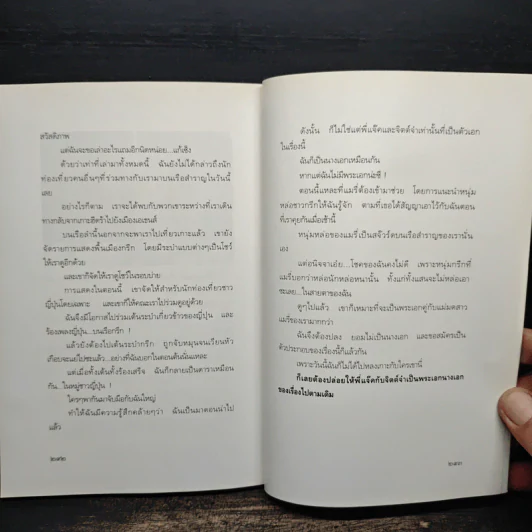 สวัสดิภาพ
แต่ฉันจะขอเล่าอะไรแถมอีกนิดหน่อย...แก้เซ็ง
ด้วยว่าเท่าที่เล่ามาทั้งหมดนี้ ฉันยังไม่ได้กล่าวถึงนัก
ท่องเที่ยวคนอื่นๆที่ร่วมทางกับเรามาบนเรือสำราญในวันนี้
เลย
อย่างไรก็ตาม เราจะได้พบกับพวกเขาระหว่างที่เราเดิน
ทางกลับจากเกาะฮิดร้าไปยังเมืองเอเธนส์
บนเรือลำนี้นอกจากจะพาเราไปเที่ยวเกาะแล้ว เขายัง
จัดรายการแสดงพื้นเมืองกรีก โดยมีระบำแบบต่างๆเป็นโชว์
ให้เราดูอีกด้วย
และเขาก็จัดให้เราดูโชว์ในรอบบ่าย
การแสดงในตอนนี้ เขาจัดให้สำหรับนักท่องเที่ยวชาว
ญี่ปุ่นโดยเฉพาะ และเขาก็ให้คณะเราไปร่วมดูอยู่ด้วย
ฉันจึงมีโอกาสไปร่วมเต้นระบำเกี่ยวข้าวของญี่ปุ่น และ
ร้องเพลงญี่ปุ่น...บนเรือกรีก !
แล้วยังต้องไปเต้นระบำกรีก ถูกจับหมุนจนเวียนหัว
เกือบจะแย่ไปซะแล้ว...อย่างที่ฉันบอกในตอนต้นนั่นแหละ
แต่เมื่อทั้งเต้นทั้งร้องเสร็จ ฉันก็กลายเป็นดาราเหมือน
กัน ในหมู่ชาวญี่ปุ่น !
ใครๆพากันมาจับมือกับฉันใหญ่
ทำให้ฉันมีความรู้สึกคล้ายๆว่า ฉันเป็นนางเอกไป
แล้ว
๒๗๒
ดังนั้น ก็ไม่ใช่แต่พี่แจ๊คและจิตต์จำเท่านั้นที่เป็นตัวเอก
ในเรื่องนี้
ฉันก็เป็นนางเอกเหมือนกัน
หากแต่ฉันไม่มีพระเอกน่ะซี !
ตอนนี้แหละที่แมรี่ต้องเข้ามาช่วย โดยการแนะนำหนุ่ม
หล่อชาวกรีกให้ฉันรู้จัก ตามที่เธอได้สัญญาเอาไว้กับฉันตอน
ที่เราคุยกันเมื่อเช้านี้
หนุ่มหล่อของแมรี่เป็นสจ๊วร์ตบนเรือสำราญของเรานั่น
เอง
แต่อนิจจาเอ๋ย...โชคของฉันคงไม่ดี เพราะหนุ่มกรีกที่
แมรี่บอกว่าหล่อนักหล่อหนานั้น ทั้งแก่ทั้งแสนจะไม่หล่อเอา
ซะเลย...ในสายตาของฉัน
ดูๆไปแล้ว เขาก็เหมาะที่จะเป็นพระเอกคู่กับแม่มดสาว
แมรี่ของเรามากกว่า
ฉันจึงต้องปลง ยอมไม่เป็นนางเอก และขอสมัครเป็น
ตัวประกอบของเรื่องนี้ก็แล้วกัน
เพราะวันนี้ฉันก็ไม่ได้ไปหลงเกาะกับใครเขานี่
ก็เลยต้องปล่อยให้พี่แจ๊คกับจิตต์จำเป็นพระเอกนางเอก
ของเรื่องไปตามเดิม
๒๗๓